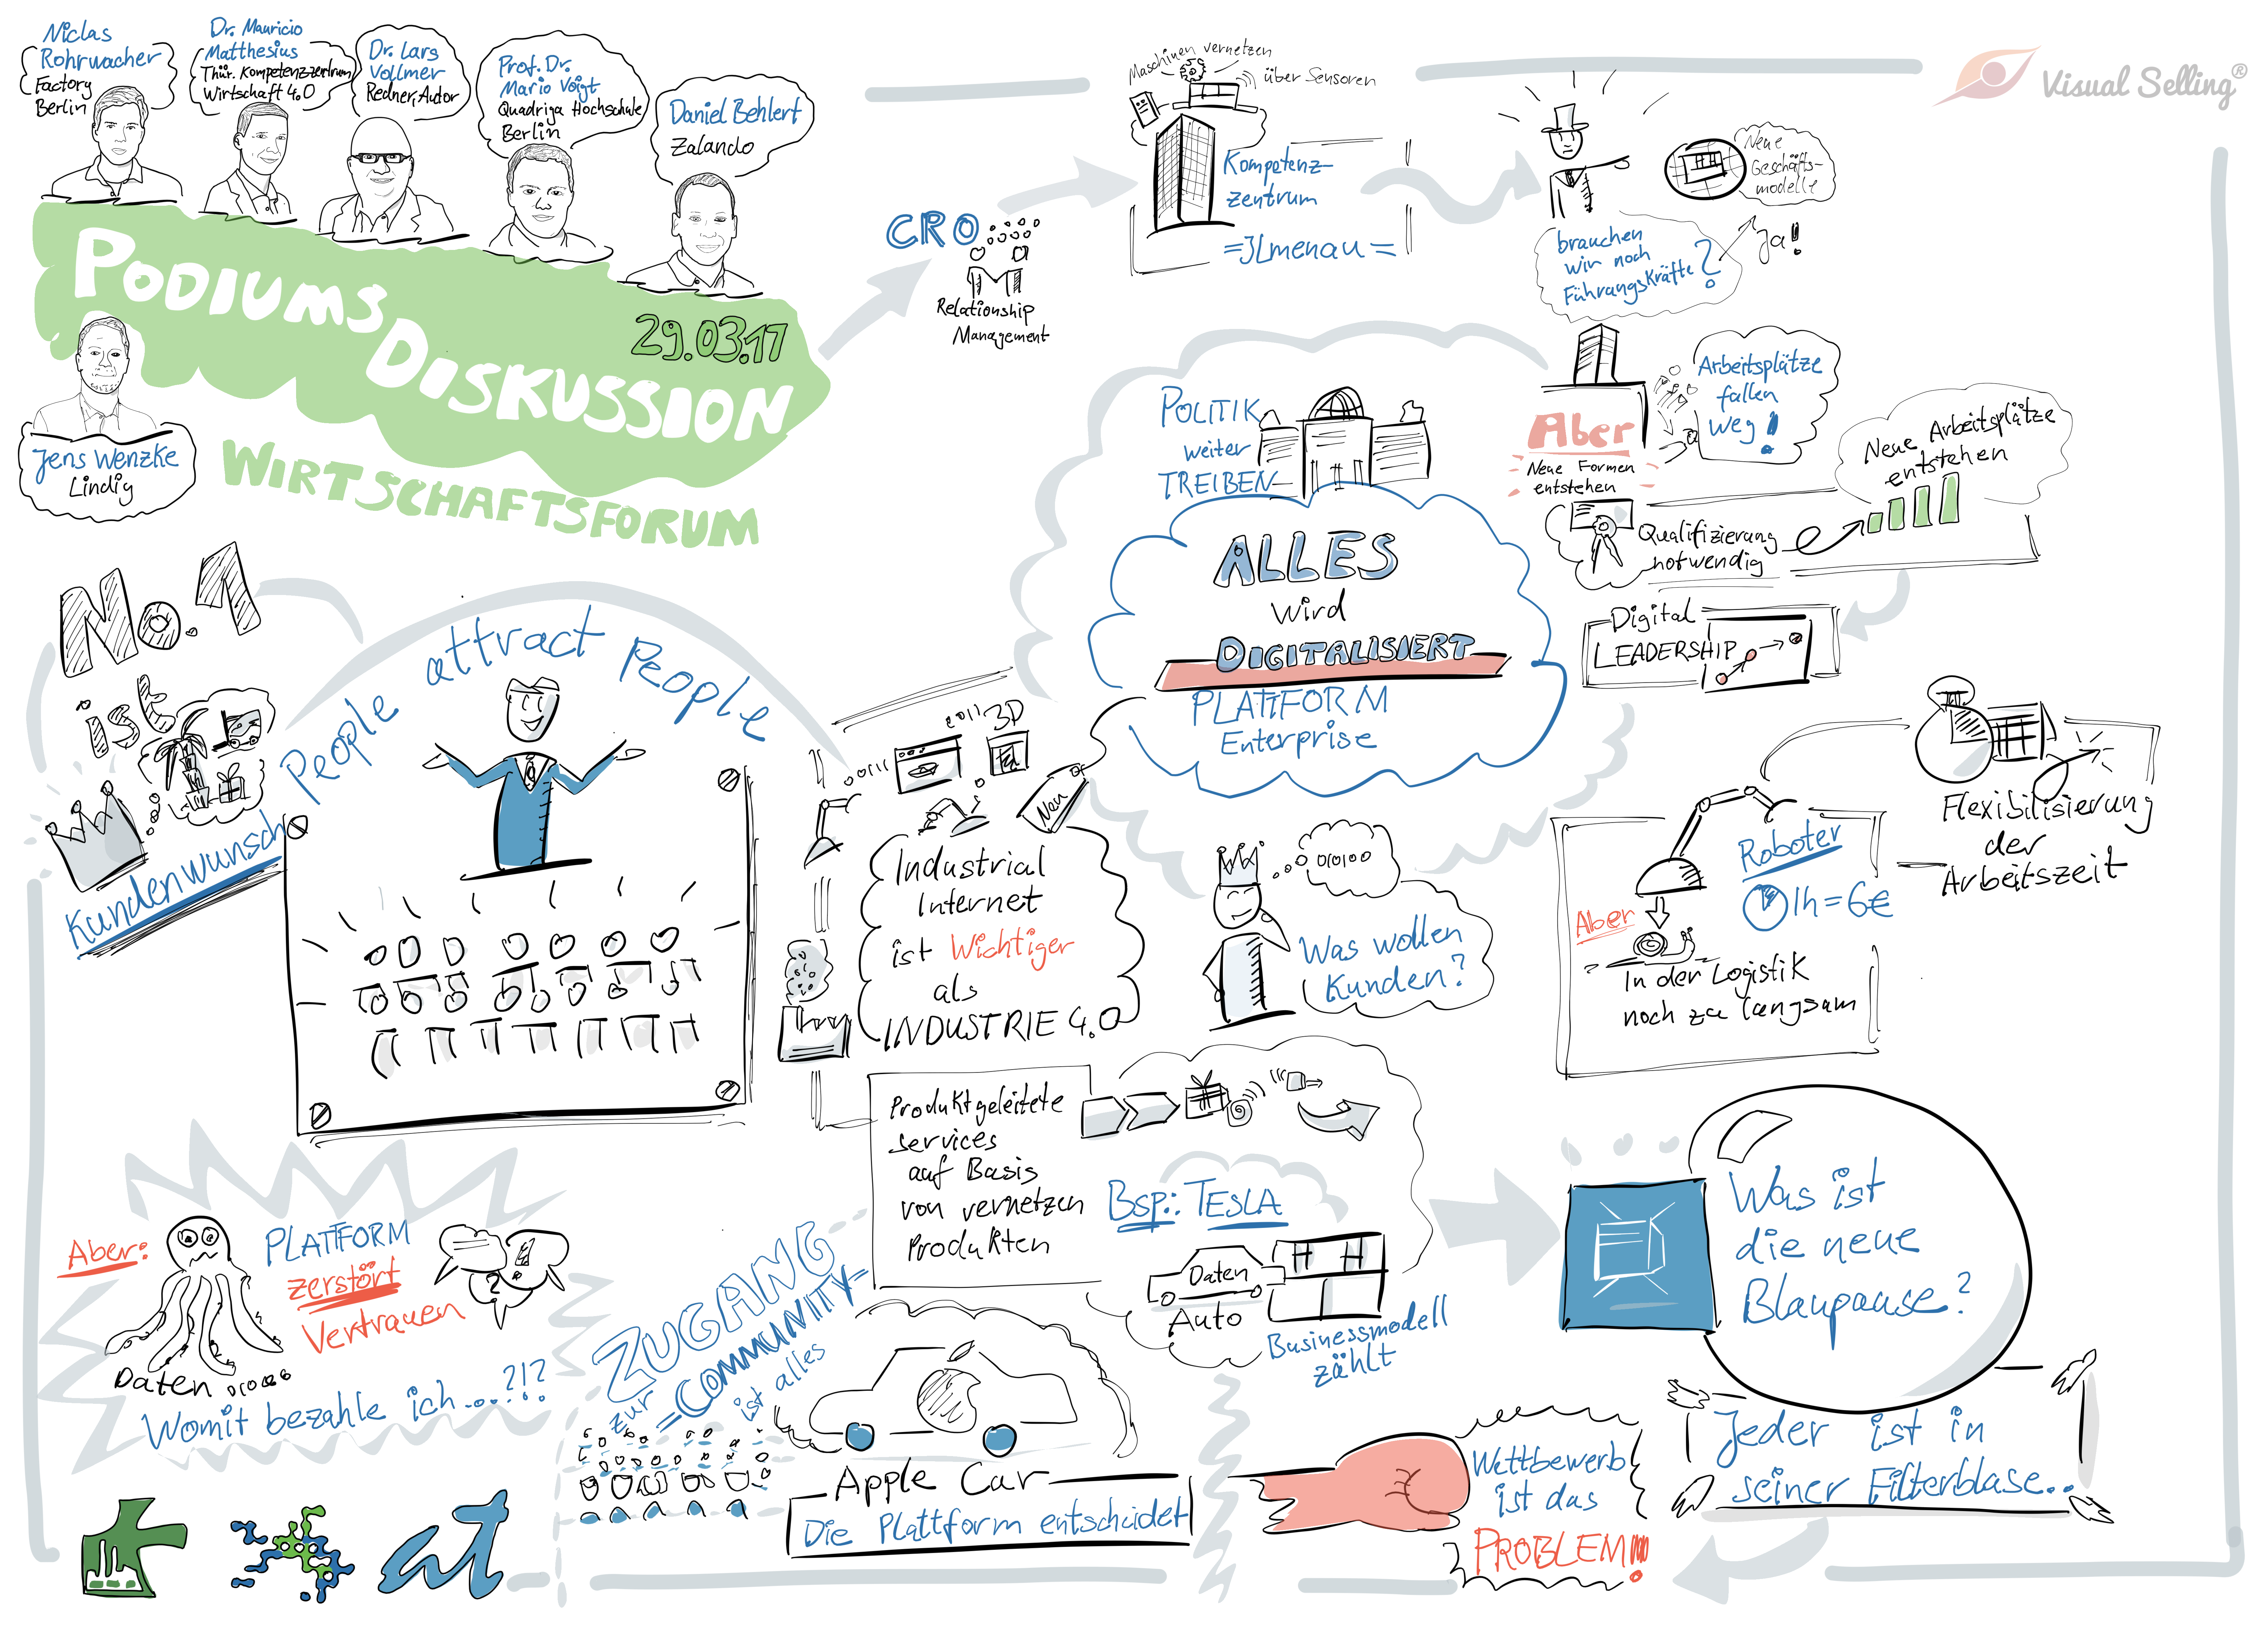 Niclas
Rohrwacher
Factory
Berlin
Dr. Mauricio
Matthesius
Thür. Kompetenzzentrum
Wirtschaft 4.0
Dr. Lars
Vollmer
Redner, Autor
Prof. Dr.
Mario Voigt
Quadriga Hochschule
Berlin
Daniel Behlert
Zalando
PODIUMS
DISKUSSION
29.03.17
WIRTSCHAFTSFORUM
Jens Wenzke
Lindig
CRO
Relationship
Management
Maschinen vernetzen
über Sensoren
Kompetenz-
zentrum
=ILmenau=
Visual Selling®
Neue
Geschäfts-
modelle
brauchen
wir noch
Führungskräfte?
Ja!
Arbeitsplätze
fallen
weg!
Aber
Neue Formen
entstehen
Neue Arbeitsplätze
entstehen
Qualifizierung
notwendig
Digital
LEADERSHIP
POLITIK
weiter
TREIBEN
ALLES
wird
DIGITALISIERT
PLATTFORM
Enterprise
No. 1
ist
Kundenwunsch
People attract People
3D
Neu
Industrial
Internet
ist Wichtiger
als
INDUSTRIE 4.0
010100
Was wollen
Kunden?
Flexibilisierung
der
Arbeitszeit
Roboter
1h = 6€
Aber
In der Logistik
noch zu langsam
Produktgeleitete
services
auf Basis
von vernetzen
Produkten
Bsp.: TESLA
Daten
Auto
Businessmodell
zählt
Was ist
die neue
Blaupause?
Jeder ist in
seiner Filterblase..
Wettbewerb
ist das
PROBLEM!!!
Aber:
PLATTFORM
zerstört
Vertrauen
Daten
Womit bezahle ich...?!?
ZUGANG
zur =COMMUNITY=
ist alles
Apple Car
Die Plattform entscheidet
at